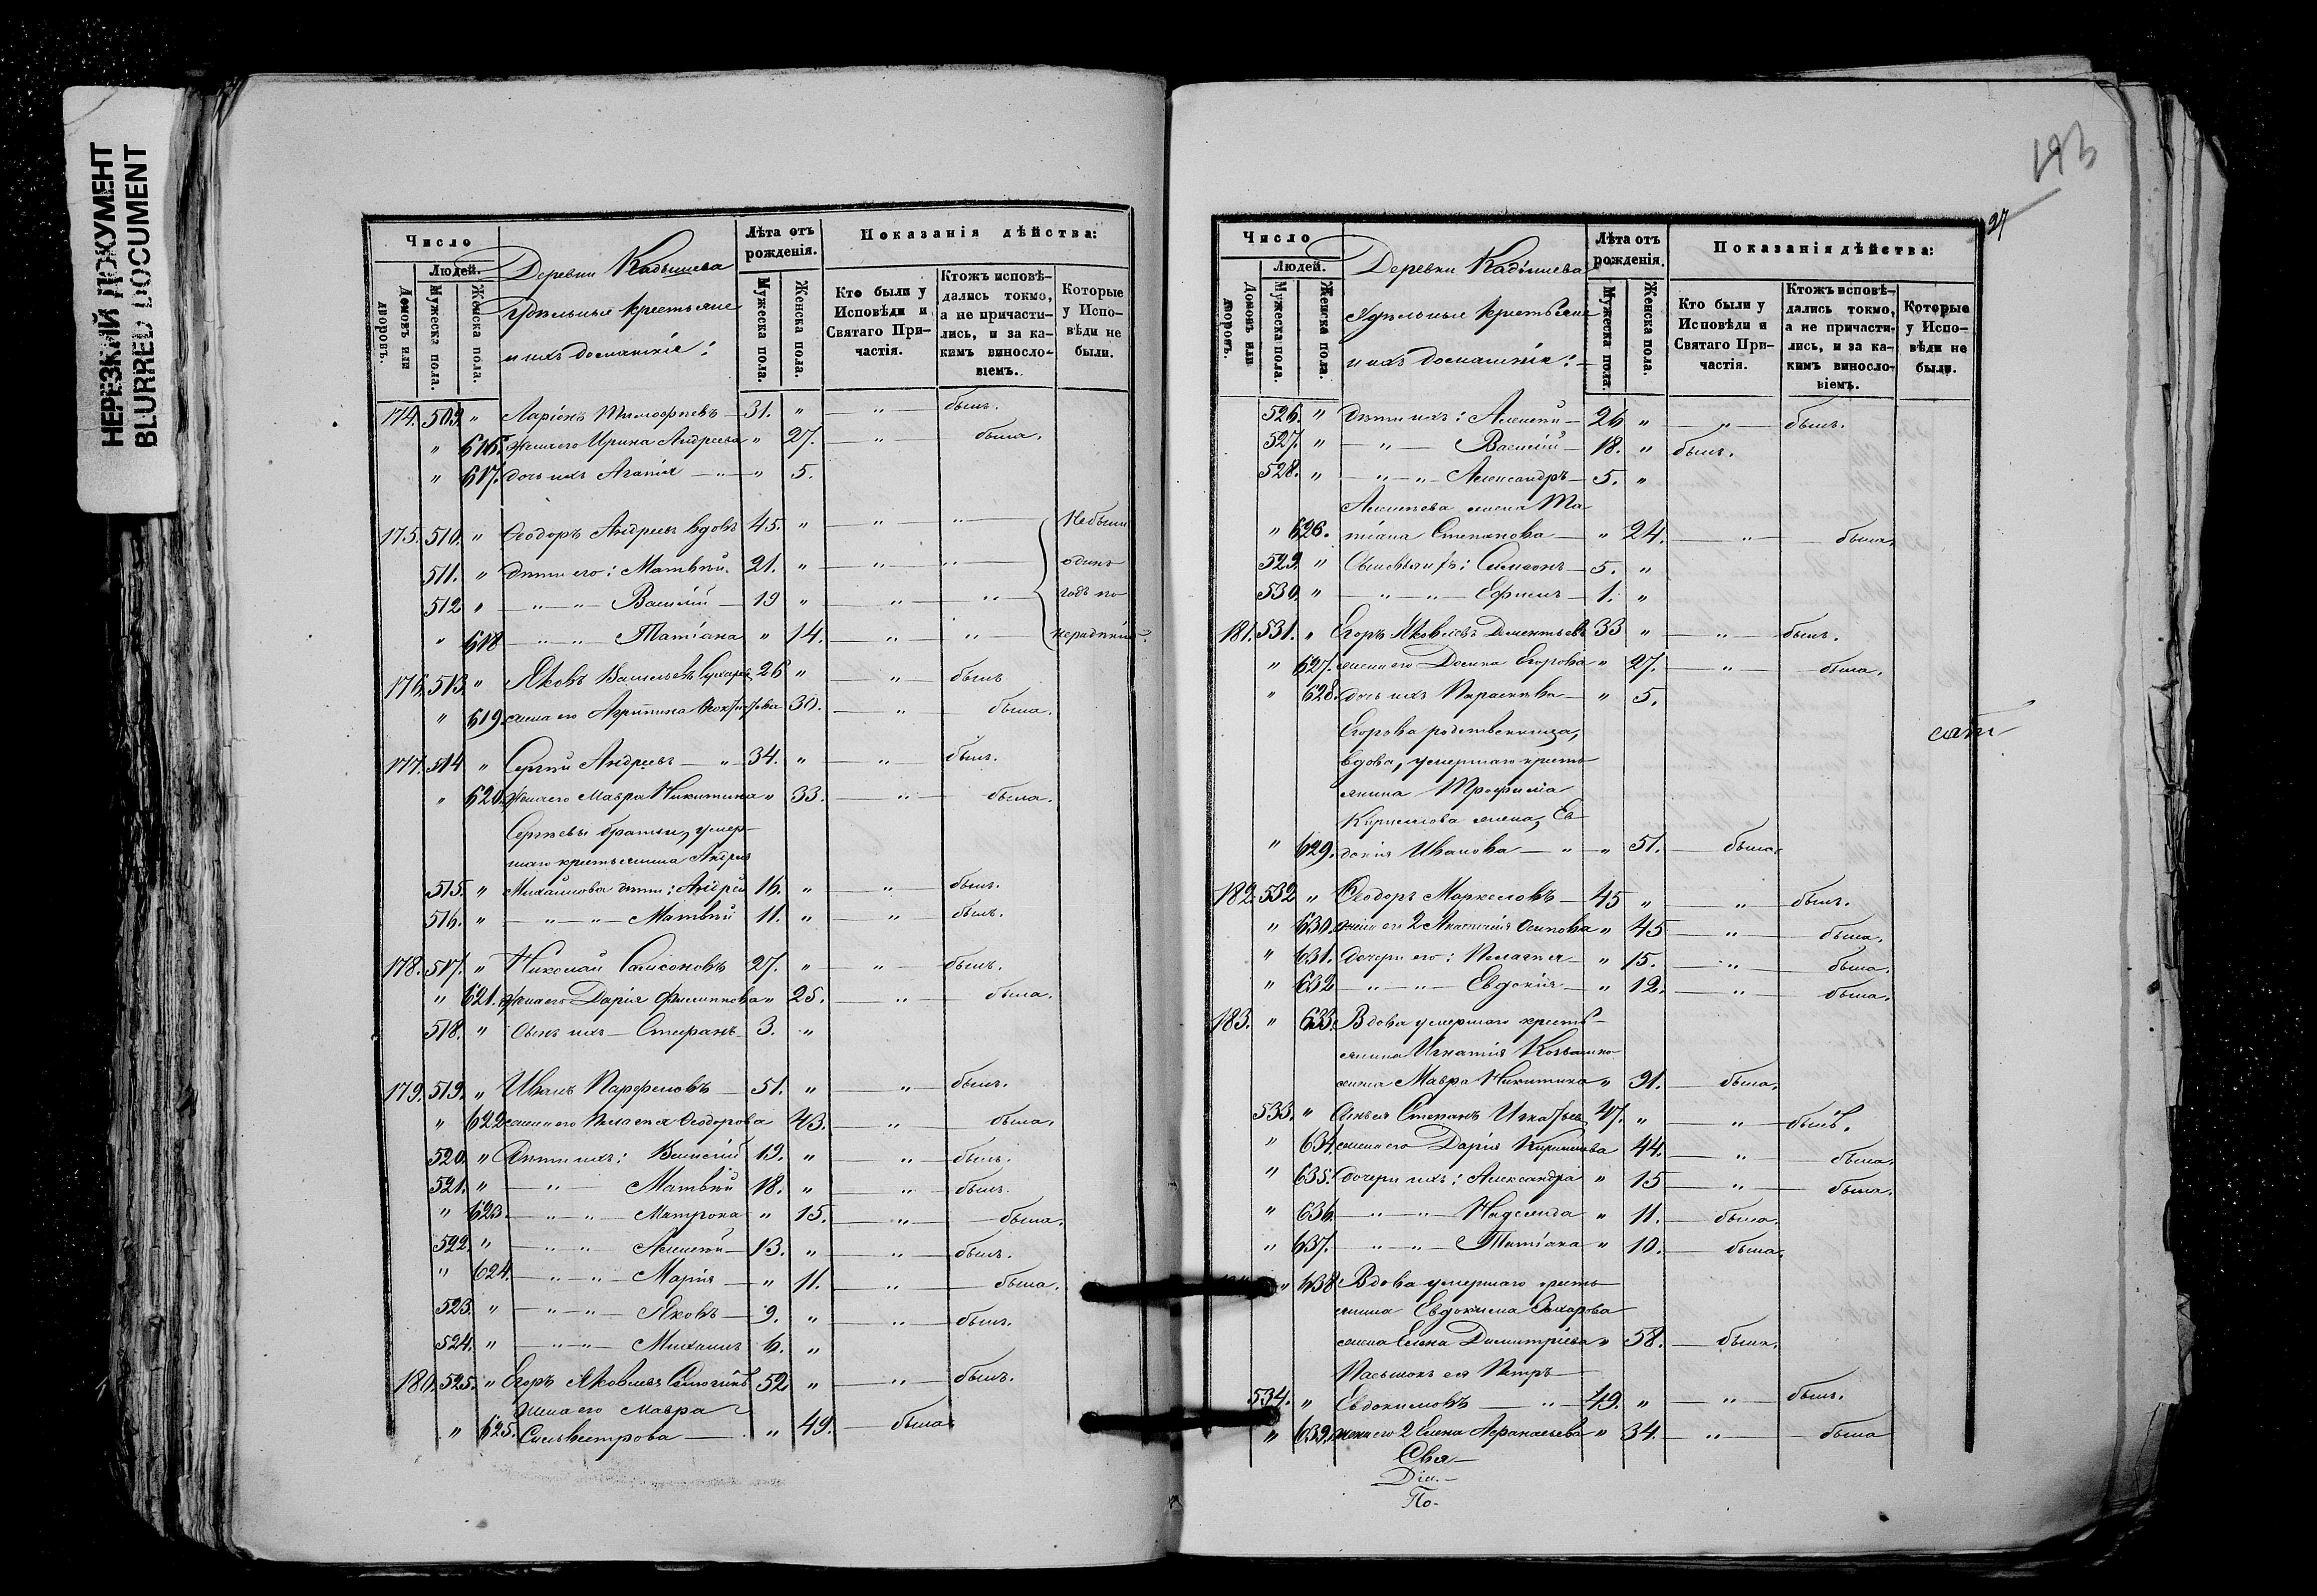 НЕРЕЗКИЙ ДОКУМЕНТ
BLURRED DOCUMENT
Число
Людей.
Домовъ или дворовъ.
Мужеска пола.
Женска пола.
Деревни Кадышева
Удѣльные крестьяне
и ихъ домашніе:
Лѣта отъ рожденія.
Мужеска пола.
Женска пола.
Показанія дѣйства:
Кто были у Исповѣди и Святаго Причастія.
Ктожъ исповѣдались токмо, а не причастились, и за какимъ винословіемъ.
Которые у Исповѣди не были.
174. 509. " Ларіонъ Тимофеевъ — 31. " — " — былъ.
" 616. Жена его Ирина Андреева " 27. — " — была.
" 617. дочь ихъ Агапія — " — " 5.
175. 510. " Ѳеодоръ Андреевъ вдовъ 45. " — " — " — Небыли
511. " Дѣти его: Матвѣй. 21. " — " — " — одинъ
512 " — " — " — Василій — 19 " — " — " — годъ по
" 618 — " — " — Татіана " 14. — " — " — нерадѣнію.
176. 513. " Яковъ Васильевъ 26 " — " — былъ
" 619. жена его Агрипина 30. — " — была.
177. 514 " Сергѣй Андреевъ — " — 34. " — " — былъ.
" 620. Жена его Мавра Никитина " 33. — " — была.
Сергѣевы братья, умер-
шаго крестьянина Андрея
515. " Михайлова дѣти: Андрей 16. " — " — былъ.
516. " — " — " — Матвѣй 11. " — " — былъ.
178. 517. " Николай Самсоновъ 27. " — " — былъ.
" 621. Жена его Дарія Филиппова " 25. — " — была.
518. " Сынъ ихъ — Стефанъ — 3. "
179. 519. " Иванъ Парфеновъ — 51. " — " — былъ.
" 622 жена его Пелагея Ѳеодорова 43. — " — была.
520. " Дѣти ихъ: Василій 19. " — " — былъ.
521. " — " — Матвѣй 18. " — " — былъ.
" 623. — " — " — Матрона " 15. — " — была.
522. " — " — " Алексѣй — 13. " — " — былъ.
" 624. — " — " — Марія — " 11. — " — была.
523. " — " — " — Яковъ — 9. " — " — былъ.
524. " — " — " — Михаилъ 6. "
180. 525. " Егоръ Яковлевъ 52 " — " — былъ.
Жена его Мавра
" 625. Сильвестрова — " 49. — была
193
27
Число
Людей.
Домовъ или дворовъ.
Мужеска пола.
Женска пола.
Деревни Кадышева
Удѣльные крестьяне
и ихъ домашніе:
Лѣта отъ рожденія.
Мужеска пола.
Женска пола.
Показанія дѣйства:
Кто были у Исповѣди и Святаго Причастія.
Ктожъ исповѣдались токмо, а не причастились, и за какимъ винословіемъ.
Которые у Исповѣди не были.
526. " Дѣти ихъ: Алексѣй — 26 " — " — былъ.
527. " — " — Василій — 18. " — былъ.
528. " — " — " — Александръ — 5. "
Алексѣева жена Та-
" 626. тіана Степанова — " 24. — " — была.
529. " Сыновья ихъ: Симеонъ — 5. "
530. " — " — " — Ефимъ — 1. "
181. 531. " Егоръ Яковлевъ Дементьевъ 33 " — " — былъ.
" 627. жена его Домна Егорова " 27. — " — была.
" 628. дочь ихъ Параскева — " 5.
Егорова родственница,
вдова, умершаго кресть-
янина Трофима
Кирилова жена, Ев-
" 629. докія Иванова — " — " 51. — была.
182. 532 " Ѳеодоръ Маркеловъ — 45 " — " — былъ.
" 630. жена его 2 Анастасія Осипова " 45 — " — была.
" 631. Дочери его: Пелагея — " 15. — " — была.
" 632 — " — " — Евдокія — " 12. — " — была.
183. " 633. Вдова умершаго кресть-
янина Игнатія
жена Мавра Никитина " 91. — была.
533. " Сынъ ея Степанъ Игнатьевъ 47. " — " — былъ.
" 634. жена его Дарія Кирилова 44. — " — была.
" 635. Дочери ихъ: Александра " 15 — " — была.
" 636. — " — " — Надежда " 11. — была.
" 637. — " — " — Татіана " 10. — была.
" 638 Вдова умершаго кресть-
янина Евдокима Захарова
жена Елена Димитріева " 58. — была.
Пасынокъ ея Петръ —
534. " Евдокимовъ — " — 49. " — " — былъ.
" 639. жена его 2 Елена Афанасьева " 34. — " — была
Свя-
Діа.-
По-